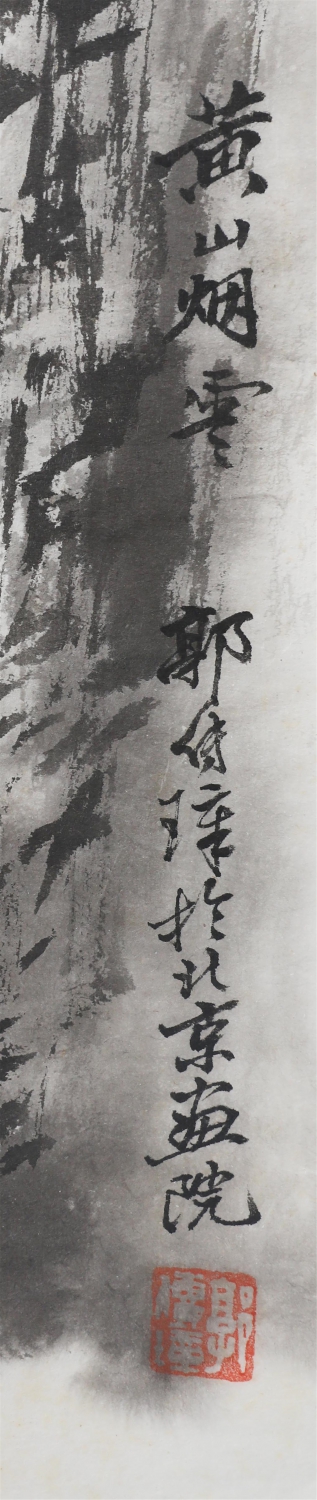 黄山烟雲 郭傳璋於北京畫院
郭傳璋